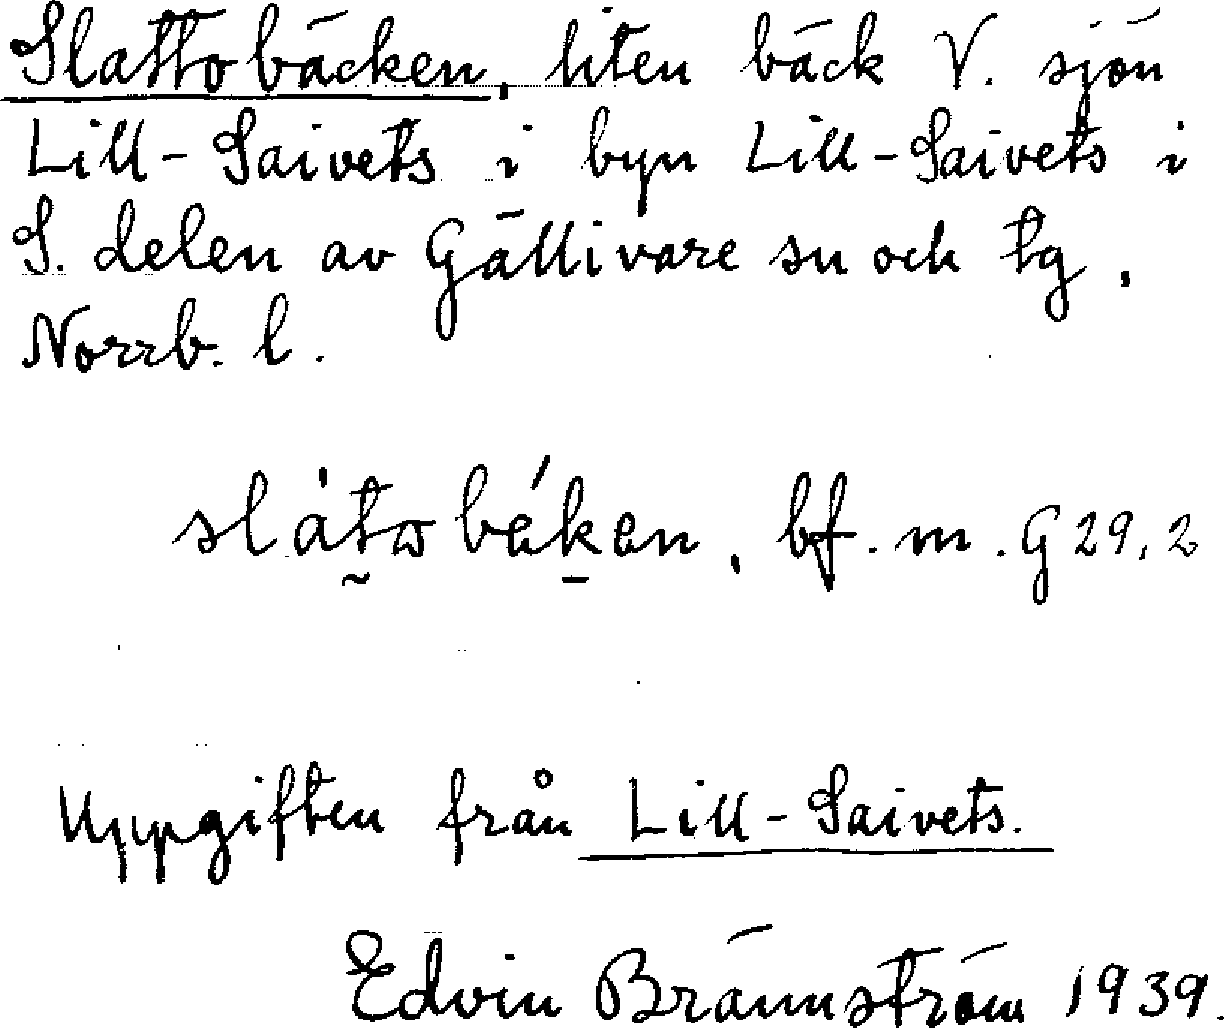 Slattobäcken, liten bäck V. sjön
Lill-Saivets i byn Lill-Saivets i
S. delen av Gällivare sn och tg,
Norrb. l.
slátobéken, bf. m. G 29,2
Uppgiften från Lill-Saivets.
Edvin Brännström 1939.